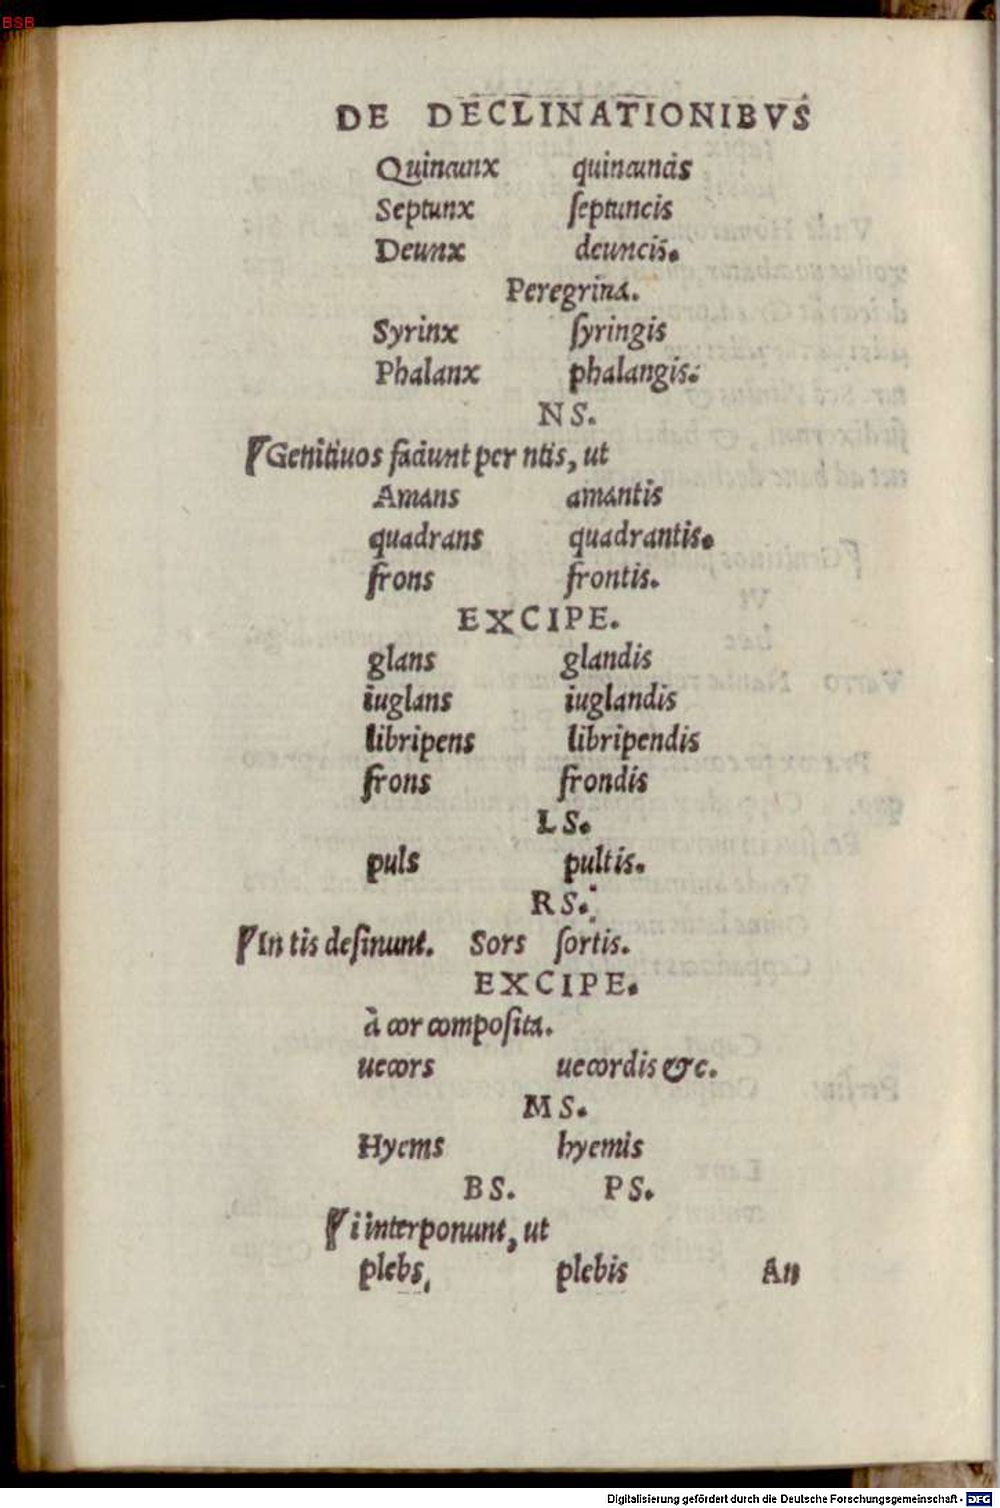 BSB
DE DECLINATIONIBVS
Quincunx quincuncis
Septunx ſeptuncis
Deunx deuncis.
Peregrina.
Syrinx ſyringis
Phalanx phalangis.
NS.
¶Genitiuos faciunt per ntis, ut
Amans amantis
quadrans quadrantis.
frons frontis.
EXCIPE.
glans glandis
iuglans iuglandis
libripens libripendis
frons frondis
LS.
puls pultis.
RS.
¶In tis deſinunt. Sors ſortis.
EXCIPE.
à cor compoſita.
uecors uecordis &c.
MS.
Hyems hyemis
BS. PS.
¶i interponunt, ut
plebs, plebis An
Digitalisierung gefördert durch die Deutsche Forschungsgemeinschaft - DFG